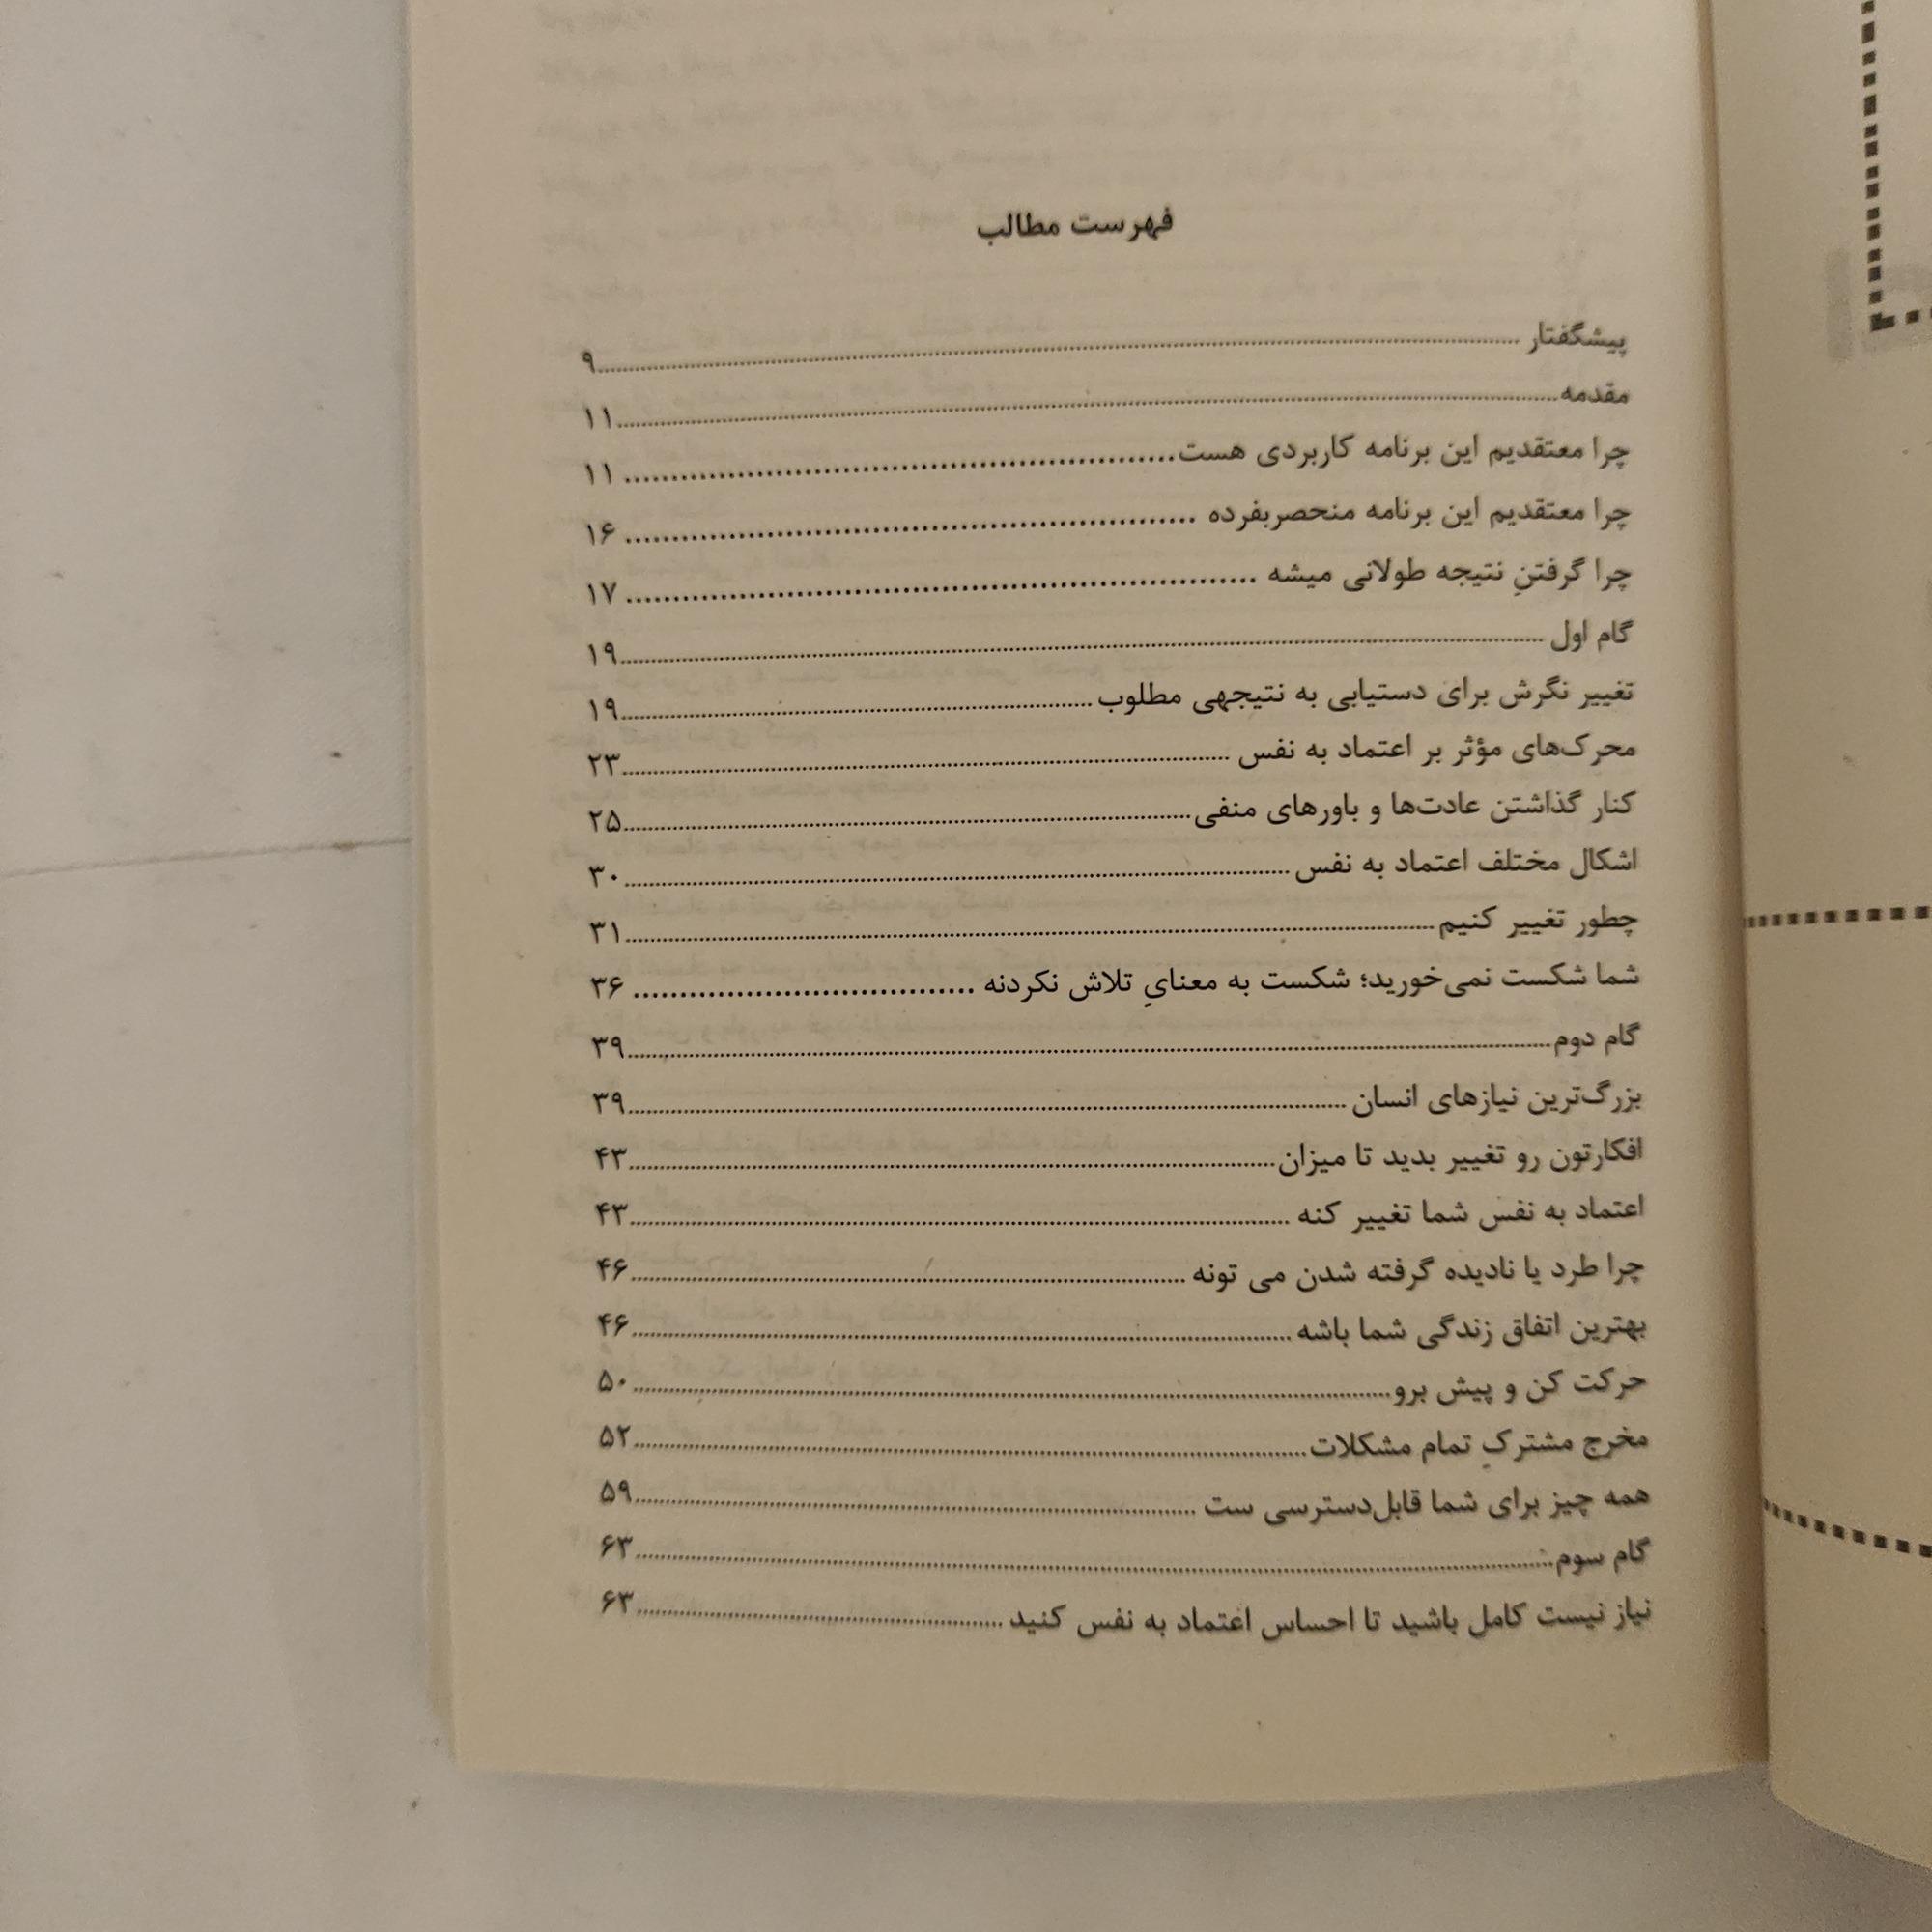 فهرست مطالب
پیشگفتار ........ ۹
مقدمه ........ ۱۱
چرا معتقدیم این برنامه کاربردی هست ........ ۱۱
چرا معتقدیم این برنامه منحصربفرده ........ ۱۶
چرا گرفتنِ نتیجه طولانی میشه ........ ۱۷
گام اول ........ ۱۹
تغییر نگرش برای دستیابی به نتیجهی مطلوب ........ ۱۹
محرک‌های مؤثر بر اعتماد به نفس ........ ۲۳
کنار گذاشتن عادت‌ها و باورهای منفی ........ ۲۵
اشکال مختلف اعتماد به نفس ........ ۳۰
چطور تغییر کنیم ........ ۳۱
شما شکست نمی‌خورید؛ شکست به معنایِ تلاش نکردنه ........ ۳۶
گام دوم ........ ۳۹
بزرگ‌ترین نیازهای انسان ........ ۳۹
افکارتون رو تغییر بدید تا میزان ........ ۴۳
اعتماد به نفس شما تغییر کنه ........ ۴۳
چرا طرد یا نادیده گرفته شدن می تونه ........ ۴۶
بهترین اتفاق زندگی شما باشه ........ ۴۶
حرکت کن و پیش برو ........ ۵۰
مخرج مشترکِ تمام مشکلات ........ ۵۲
همه چیز برای شما قابل‌دسترسی ست ........ ۵۹
گام سوم ........ ۶۳
نیاز نیست کامل باشید تا احساس اعتماد به نفس کنید ........ ۶۳